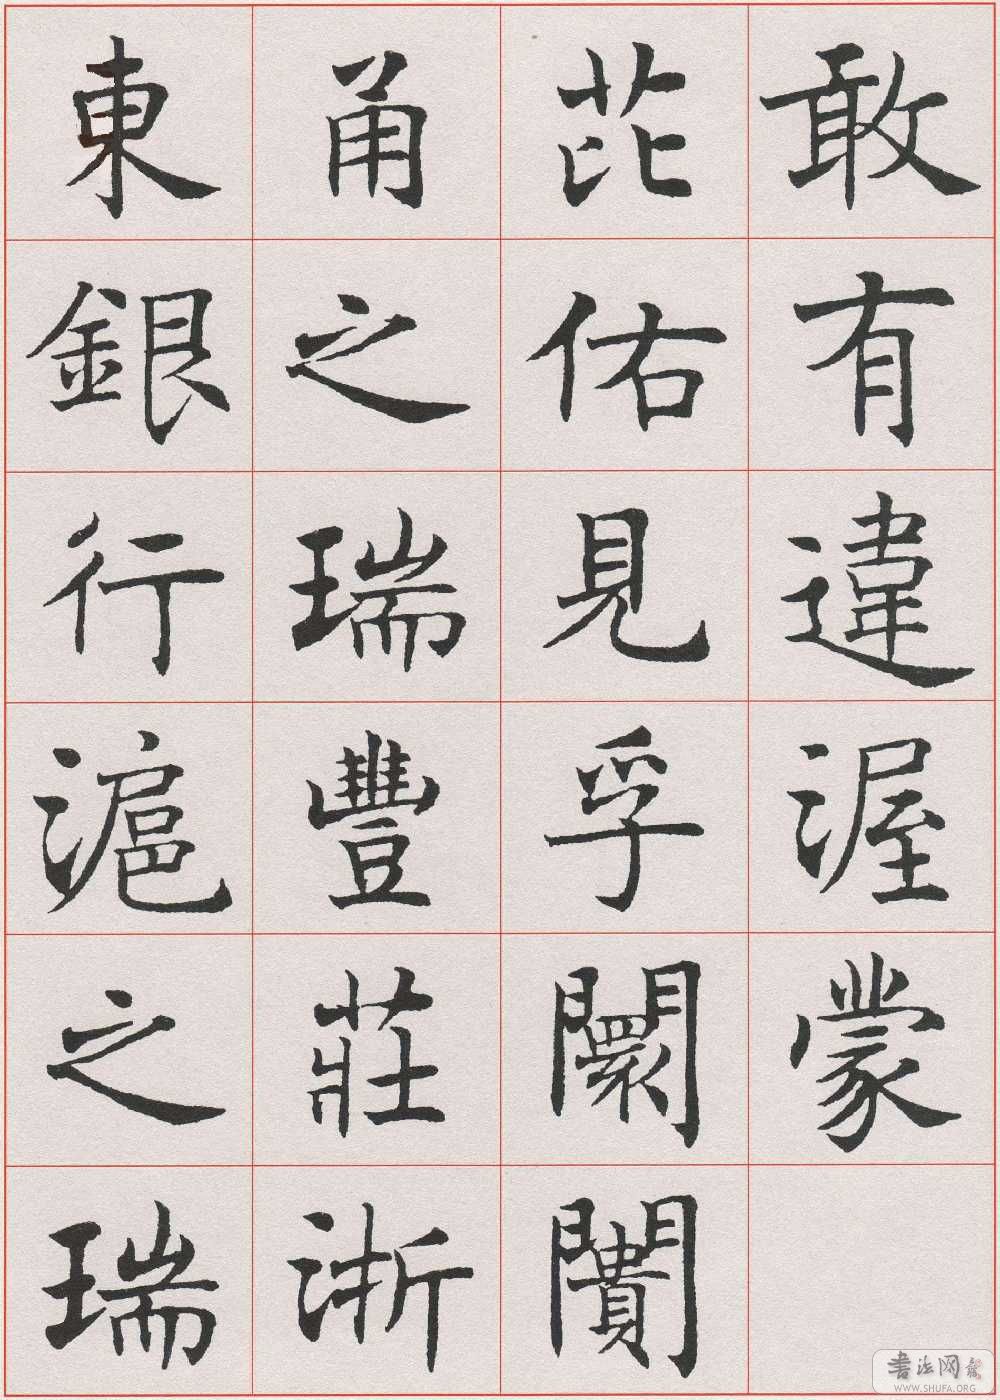 敢有違渥蒙
芘佑見孚闤闠
甬之瑞豐莊浙
東銀行滬之瑞
書法网
WWW.SHUFA.ORG